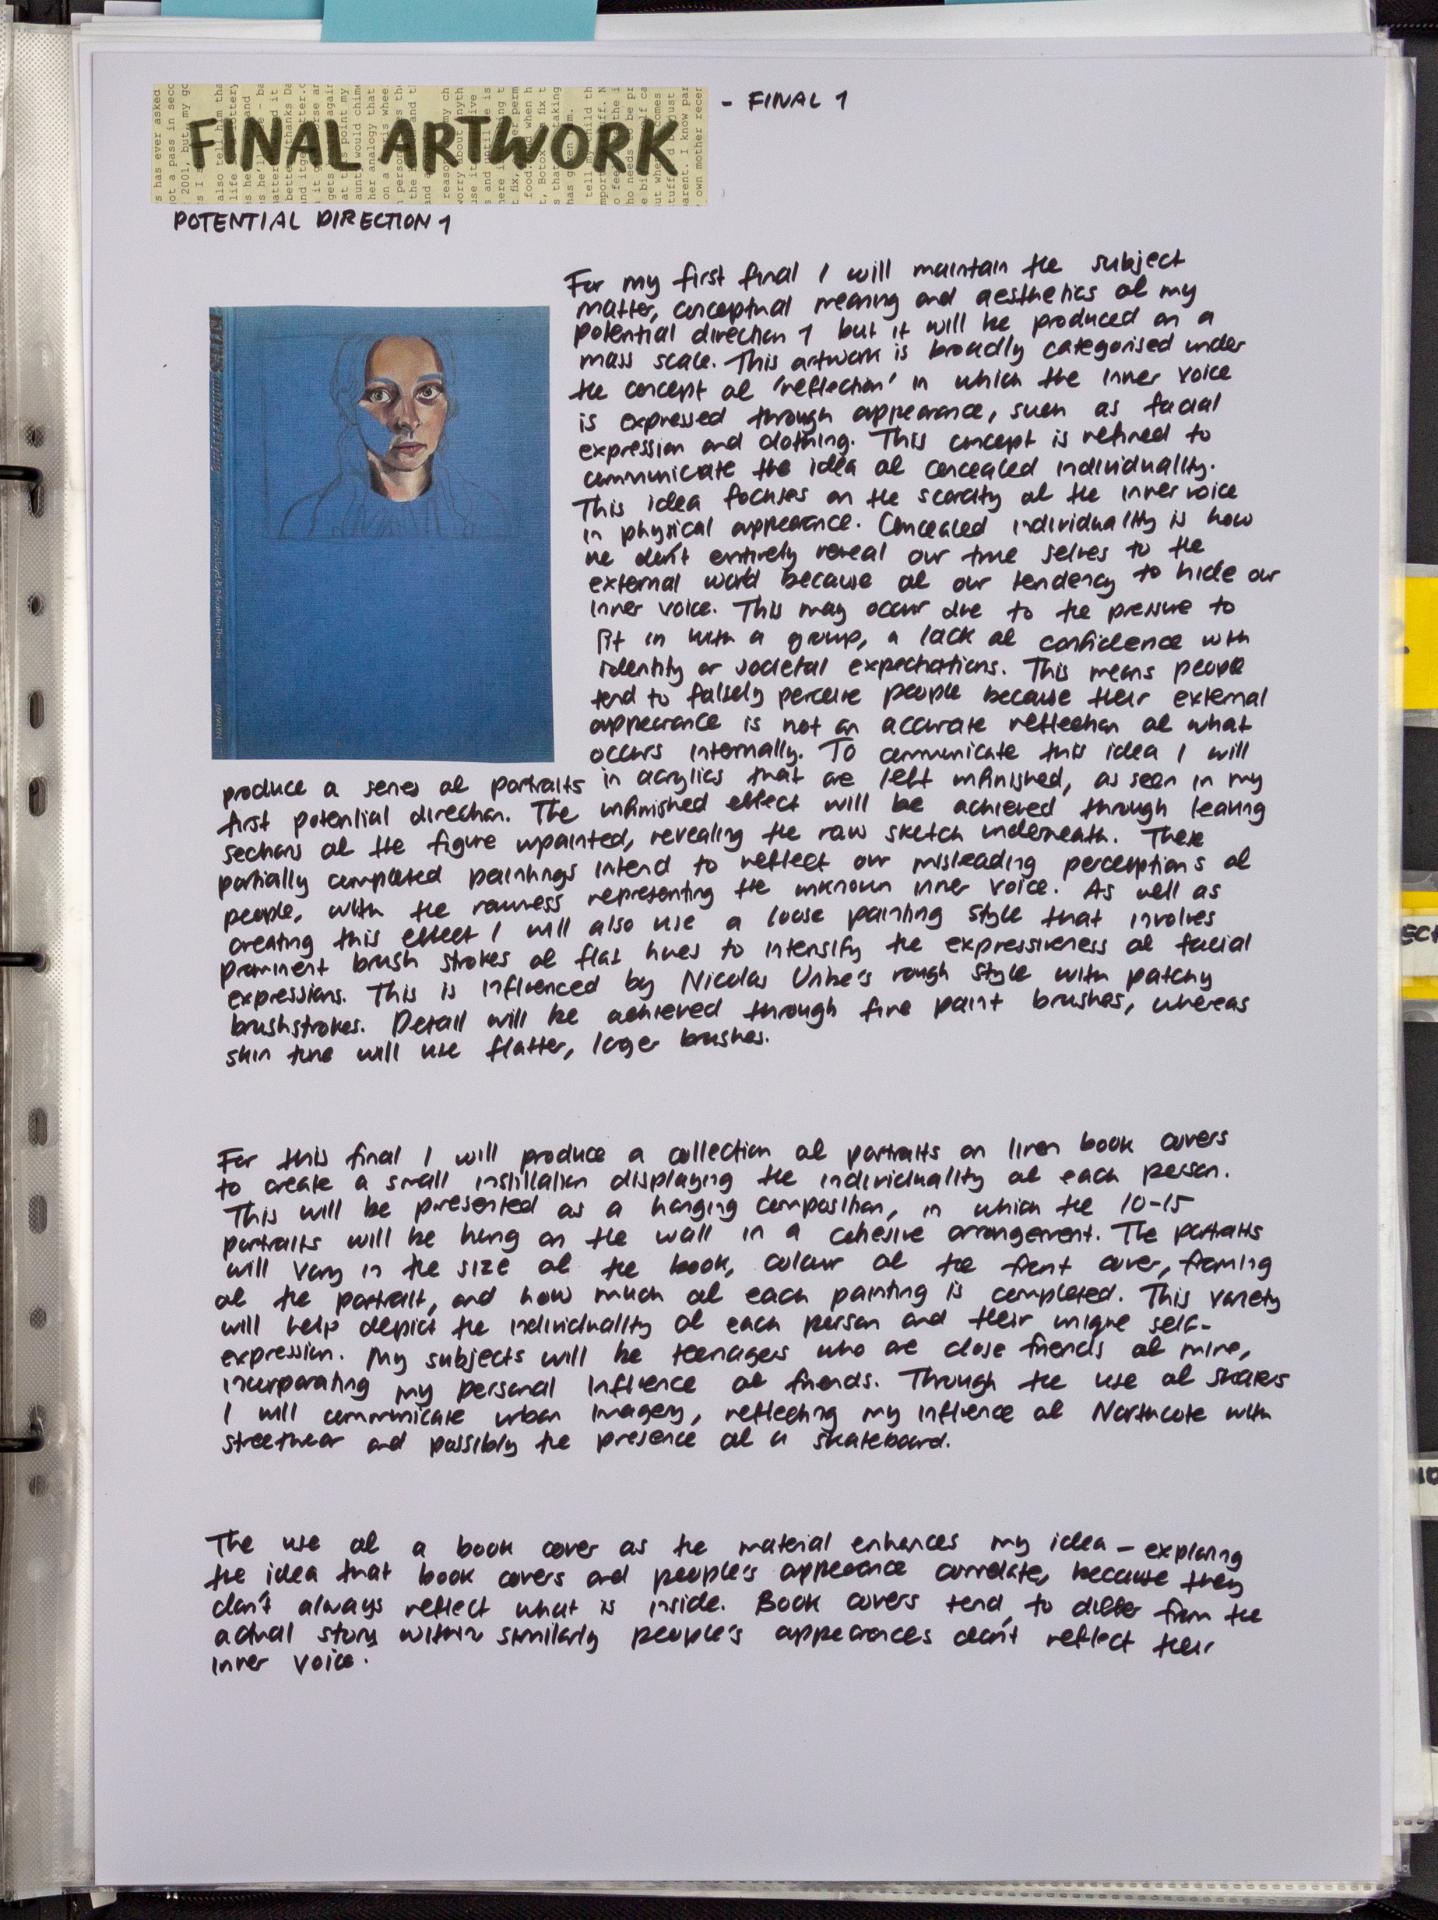 FINAL ARTWORK
- FINAL 1
POTENTIAL DIRECTION 1
For my first final I will maintain the subject
matter, conceptual meaning and aesthetics of my
potential direction 1 but it will be produced on a
mass scale. This artwork is broadly categorised under
the concept of 'reflection' in which the inner voice
is expressed through appearance, such as facial
expression and clothing. This concept is refined to
communicate the idea of concealed individuality.
This idea focuses on the scarcity of the inner voice
in physical appearance. Concealed individuality is how
we don't entirely reveal our true selves to the
external world because of our tendency to hide our
inner voice. This may occur due to the pressure to
fit in with a group, a lack of confidence with
identity or societal expectations. This means people
tend to falsely perceive people because their external
appearance is not an accurate reflection of what
occurs internally. To communicate this idea I will
produce a series of portraits in acrylics that are left unfinished, as seen in my
first potential direction. The unfinished effect will be achieved through leaving
sections of the figure unpainted, revealing the raw sketch underneath. These
partially completed paintings intend to reflect our misleading perceptions of
people, with the rawness representing the unknown inner voice. As well as
creating this effect I will also use a loose painting style that involves
prominent brush strokes of flat hues to intensify the expressiveness of facial
expressions. This is influenced by Nicolas Uribe's rough style with patchy
brushstrokes. Detail will be achieved through fine paint brushes, whereas
skin tone will use flatter, larger brushes.
For this final I will produce a collection of portraits on linen book covers
to create a small instillation displaying the individuality of each person.
This will be presented as a hanging composition, in which the 10-15
portraits will be hung on the wall in a cohesive arrangement. The portraits
will vary in the size of the book, colour of the front cover, framing
of the portrait, and how much of each painting is completed. This variety
will help depict the individuality of each person and their unique self-
expression. My subjects will be teenagers who are close friends of mine,
incorporating my personal influence of friends. Through the use of skaters
I will communicate urban imagery, reflecting my influence of Northcote with
streetwear and possibly the presence of a skateboard.
The use of a book cover as the material enhances my idea – exploring
the idea that book covers and people's appearance correlate, because they
don't always reflect what is inside. Book covers tend to differ from the
actual story within similarly people's appearances don't reflect their
inner voice.